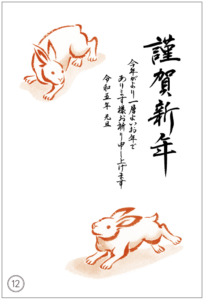 謹賀新年
今年がより一層よいお年で
ありますようお祈り申し上げます
令和五年 元旦
12